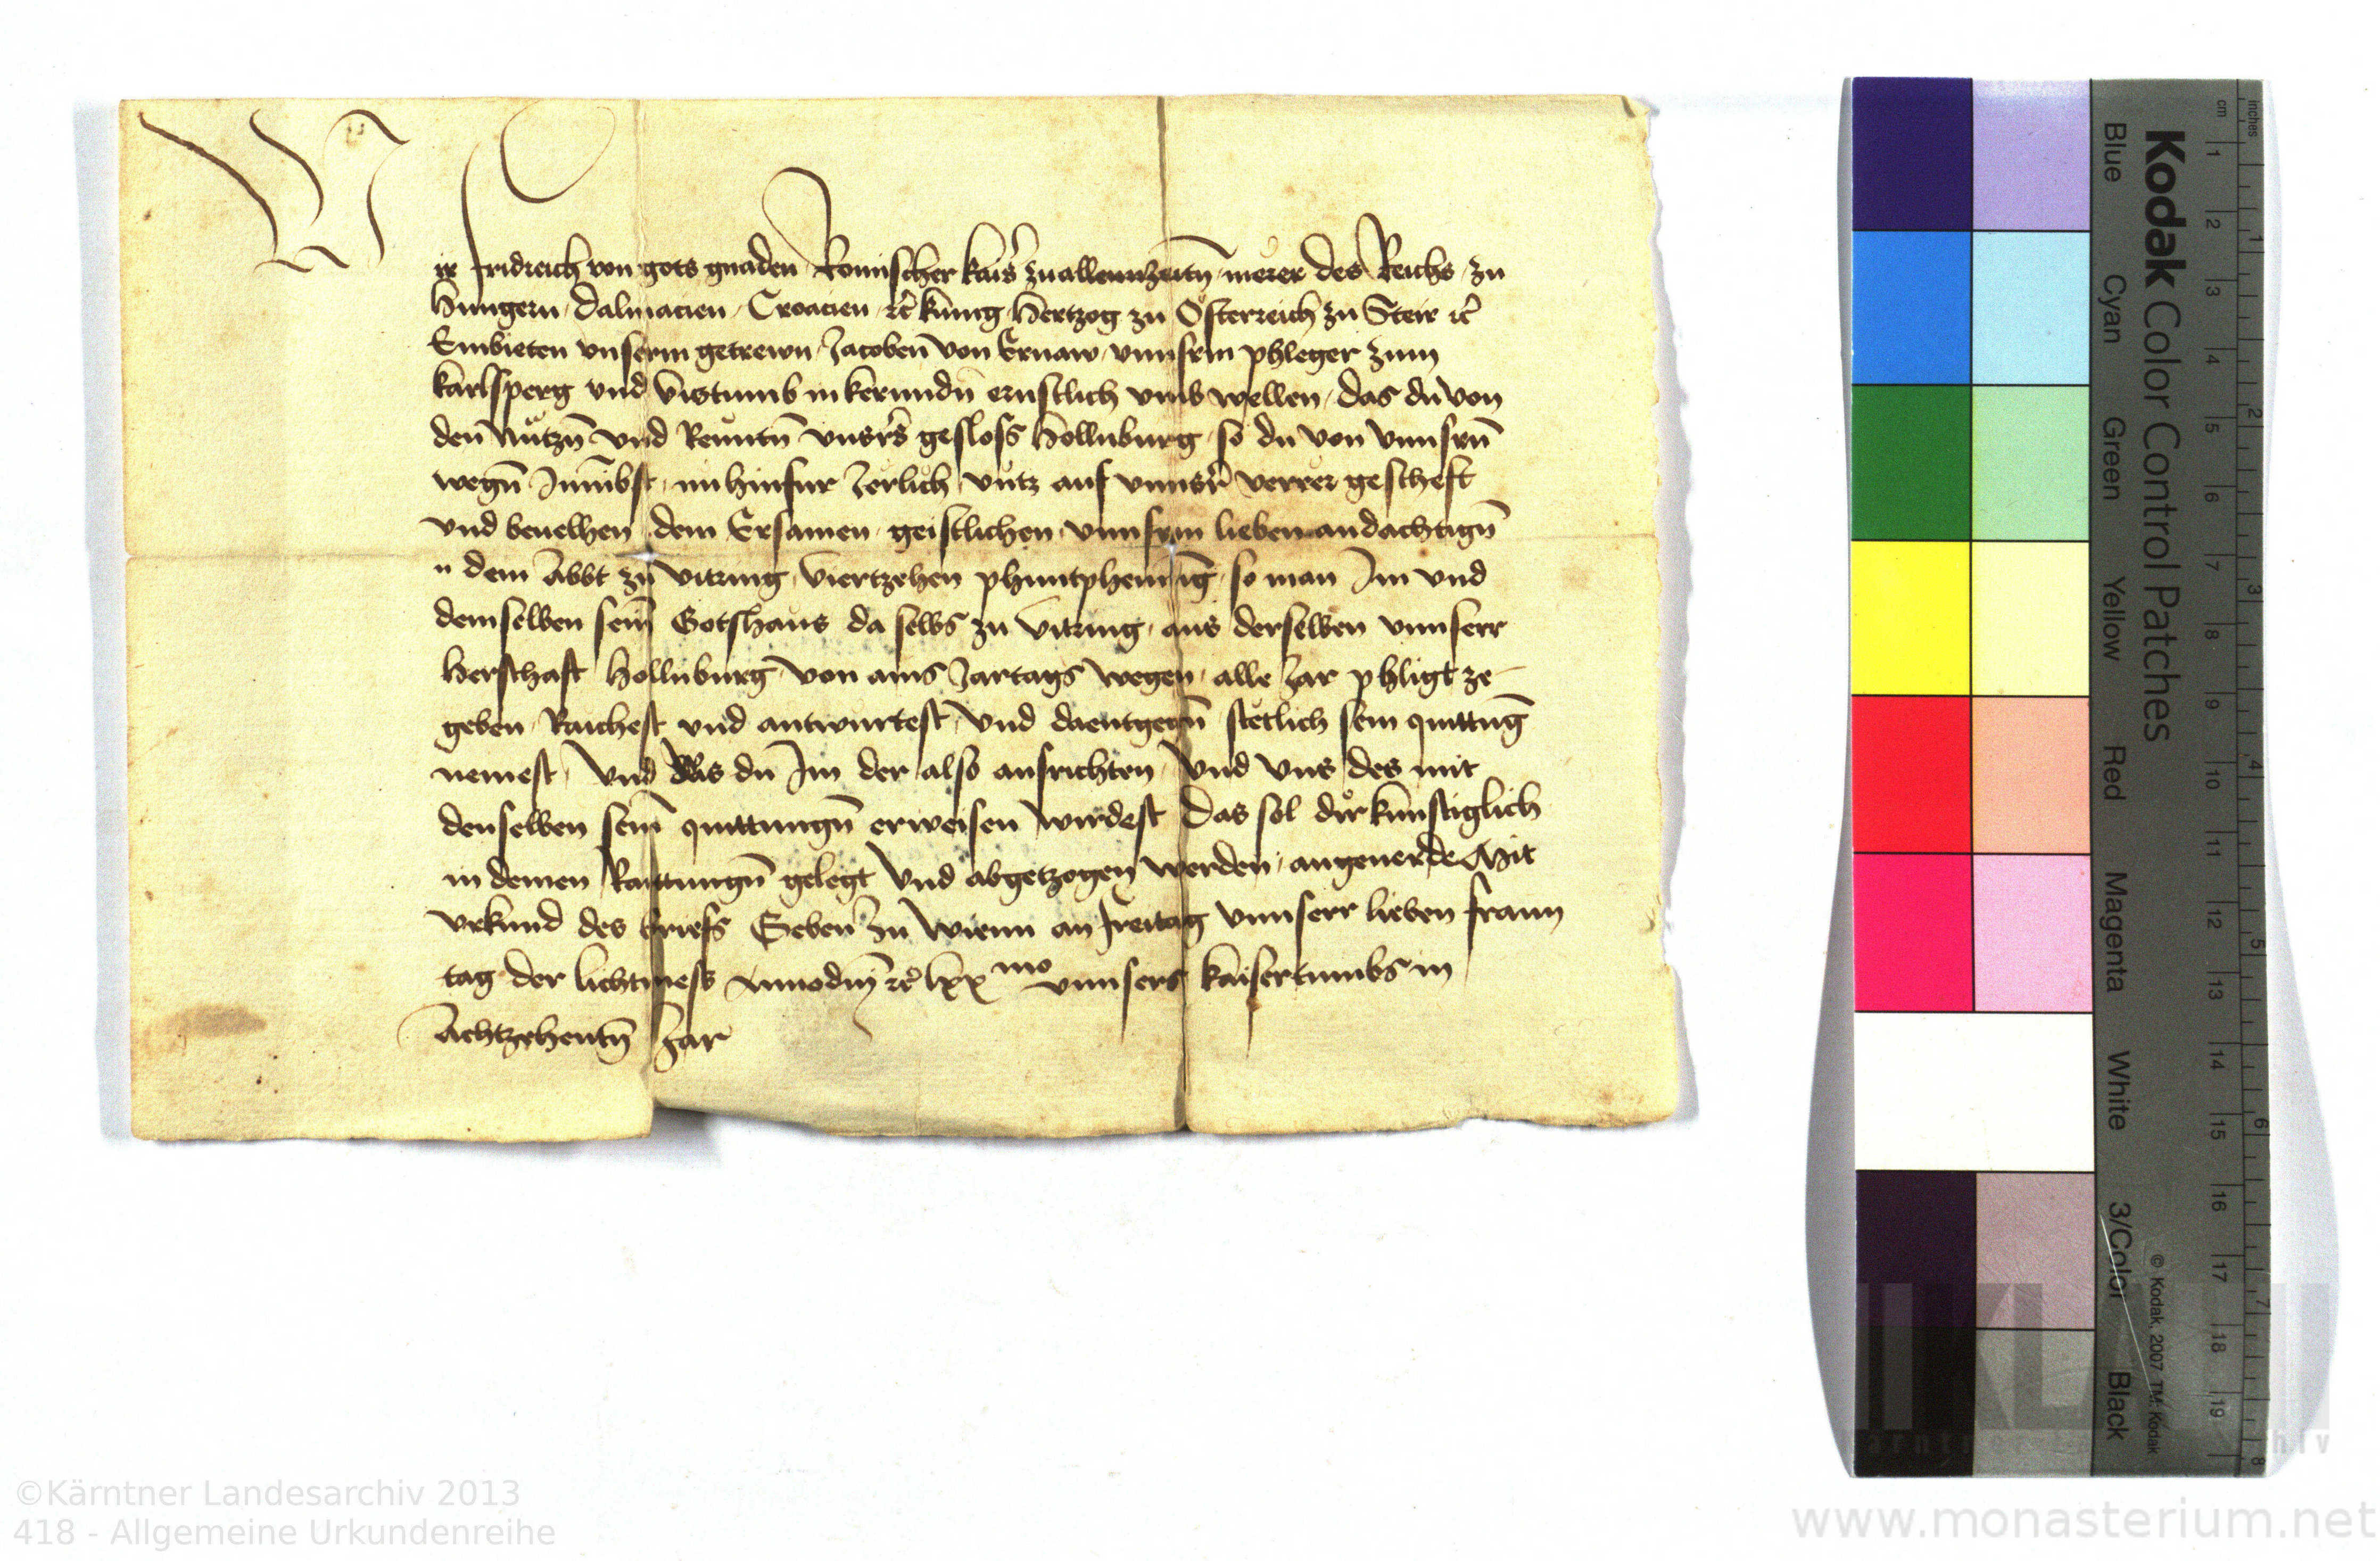 Wir fridreich von gots gnaden Romischer kaisr zuallennzeitn merer des Reichs zu
Hungern Dalmacien Croacien etc kunig Hertzog zu Osterreich zu Steir etc
Embieten vnserm getrewn Jacoben von Ernaw vnnserm phleger zum
karlsperg vnd Vistumb in kerrnndn ernstlich vnd wellen das du von
den nützn vnd Renntn vnsers gesloss Hollnburg so du von vnnsern
wegn Innhabst nu hinfur Jerlich vntz auf vnnser verrer gescheft
vnd beuelhen dem Ersamen geistlichen vnnserm lieben andachtign
n dem Abbt zu vitring viertzehen phuntphening so man Im vnd
demselben seim Gotshaus da selbs zu vitring aus derselben vnnserr
Herschaft Hollnburg von ains Jartags wegen alle Jar phligt ze
geben Raichest vnd antwurtest vnd daentgegn stetlich sein quittung
nemest Vnd Was du Im der also ausrichten Vnd vns des mit
denselben sein quittungn erweisen wirdest Das sol dir kunftiglich
in deinen Raittungn gelegt Vnd abgetzogen werden angeuerde Mit
vrkund des briefs Geben zu Wienn an freitag vnnserr lieben frawn
tag der liechtmess Annodm etc lxx mo vnnsers kaisertumbs im
Achtzehentn Jar
Kodak Color Control Patches
Blue Cyan Green Yellow Red Magenta White 3/Color Black
© Kodak, 2007 TM: Kodak
inches 1 2 3 4 5 6 7 8
cm 1 2 3 4 5 6 7 8 9 10 11 12 13 14 15 16 17 18 19
©Kärntner Landesarchiv 2013
418 - Allgemeine Urkundenreihe
www.monasterium.net